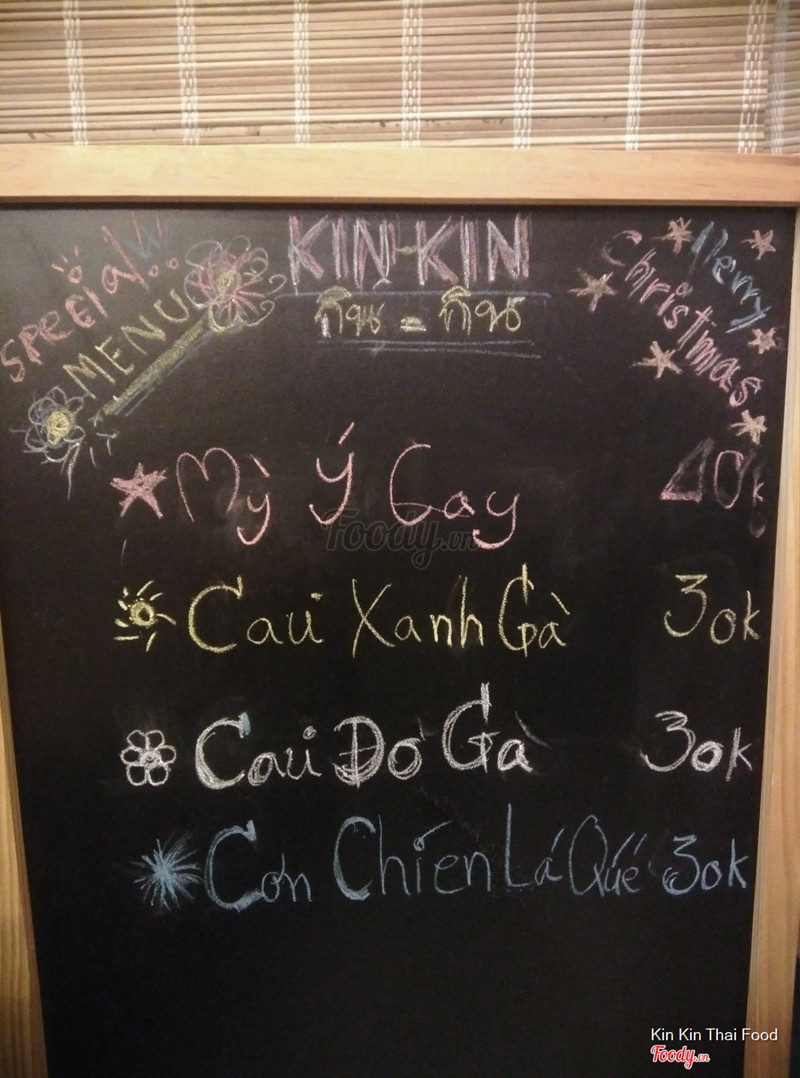 SPECIAL!!!
MENU
KIN-KIN
กิน - กิน
Merry
Christmas
Mỳ Ý Gay 40k
Cari Xanh Gà 30k
Cari Đỏ Gà 30k
Cơn Chiên Lá Quế 30k
Foody.vn
Kin Kin Thai Food
Foody.vn